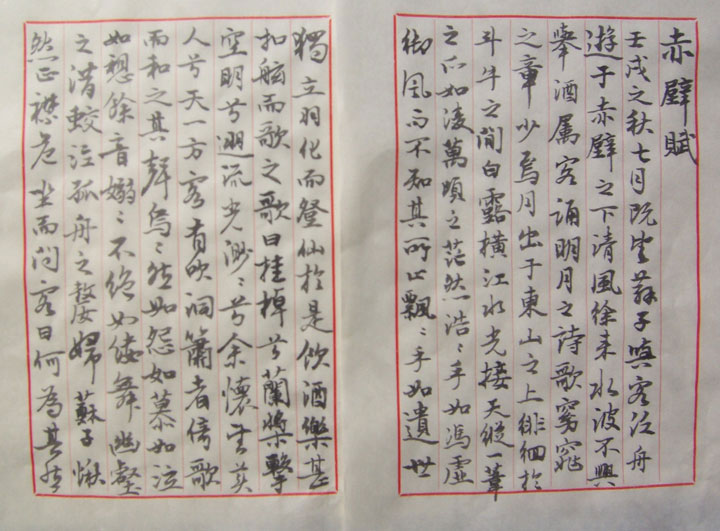 赤壁賦
壬戌之秋七月既望蘇子與客泛舟
遊于赤壁之下清風徐來水波不興
舉酒属客誦明月之詩歌窈窕
之章少焉月出于東山之上徘徊於
斗牛之間白露橫江水光接天縱一葦
之所如凌萬頃之茫然浩〻乎如馮虛
御風而不知其所止飄〻乎如遺世
獨立羽化而登仙於是飲酒樂甚
扣舷而歌之歌曰桂棹兮蘭槳擊
空明兮遡流光渺〻兮余懷望美
人兮天一方客有吹洞簫者倚歌
而和之其聲嗚〻然如怨如慕如泣
如愬餘音嫋〻不絕如縷舞幽壑
之潛蛟泣孤舟之嫠婦蘇子愀
然正襟危坐而問客曰何為其然